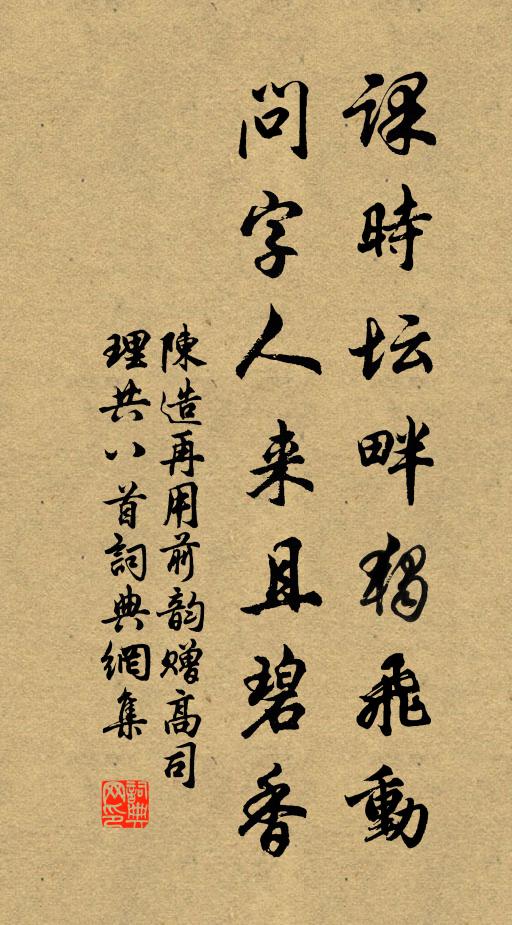 課時坛畔独飛動
問字人来且碧香
陳造再用前韵赠高司
理共八首詞典網集
詞典网印